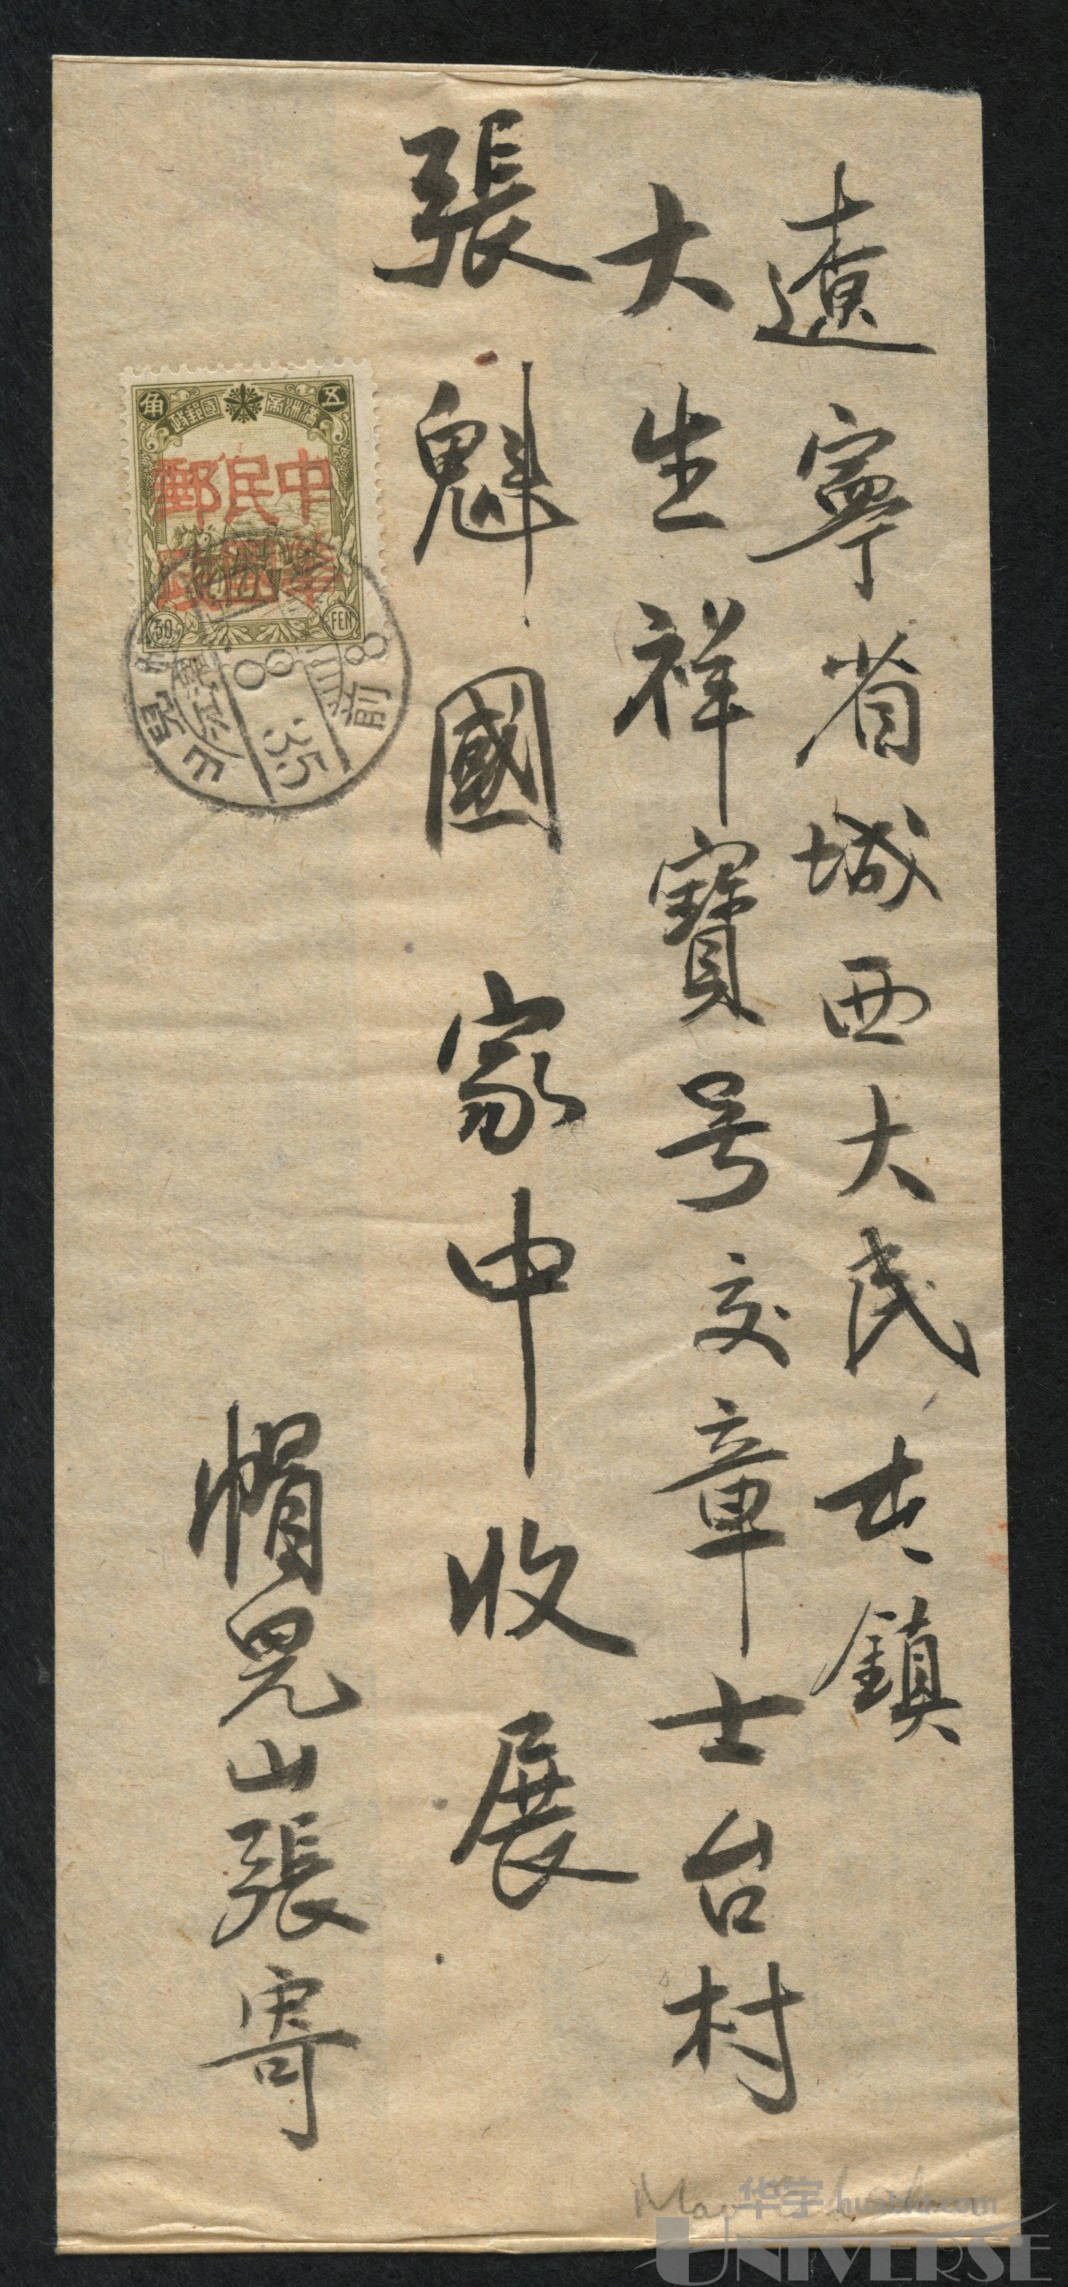 遼寧省城西大民屯鎮
大生祥寶号交章士台村
張魁國家中收展
帽児山張寄
角 五
滿洲帝國郵政
中華民國郵政
50 FEN
8 前
35 8 8
華宇
UNIVERSE